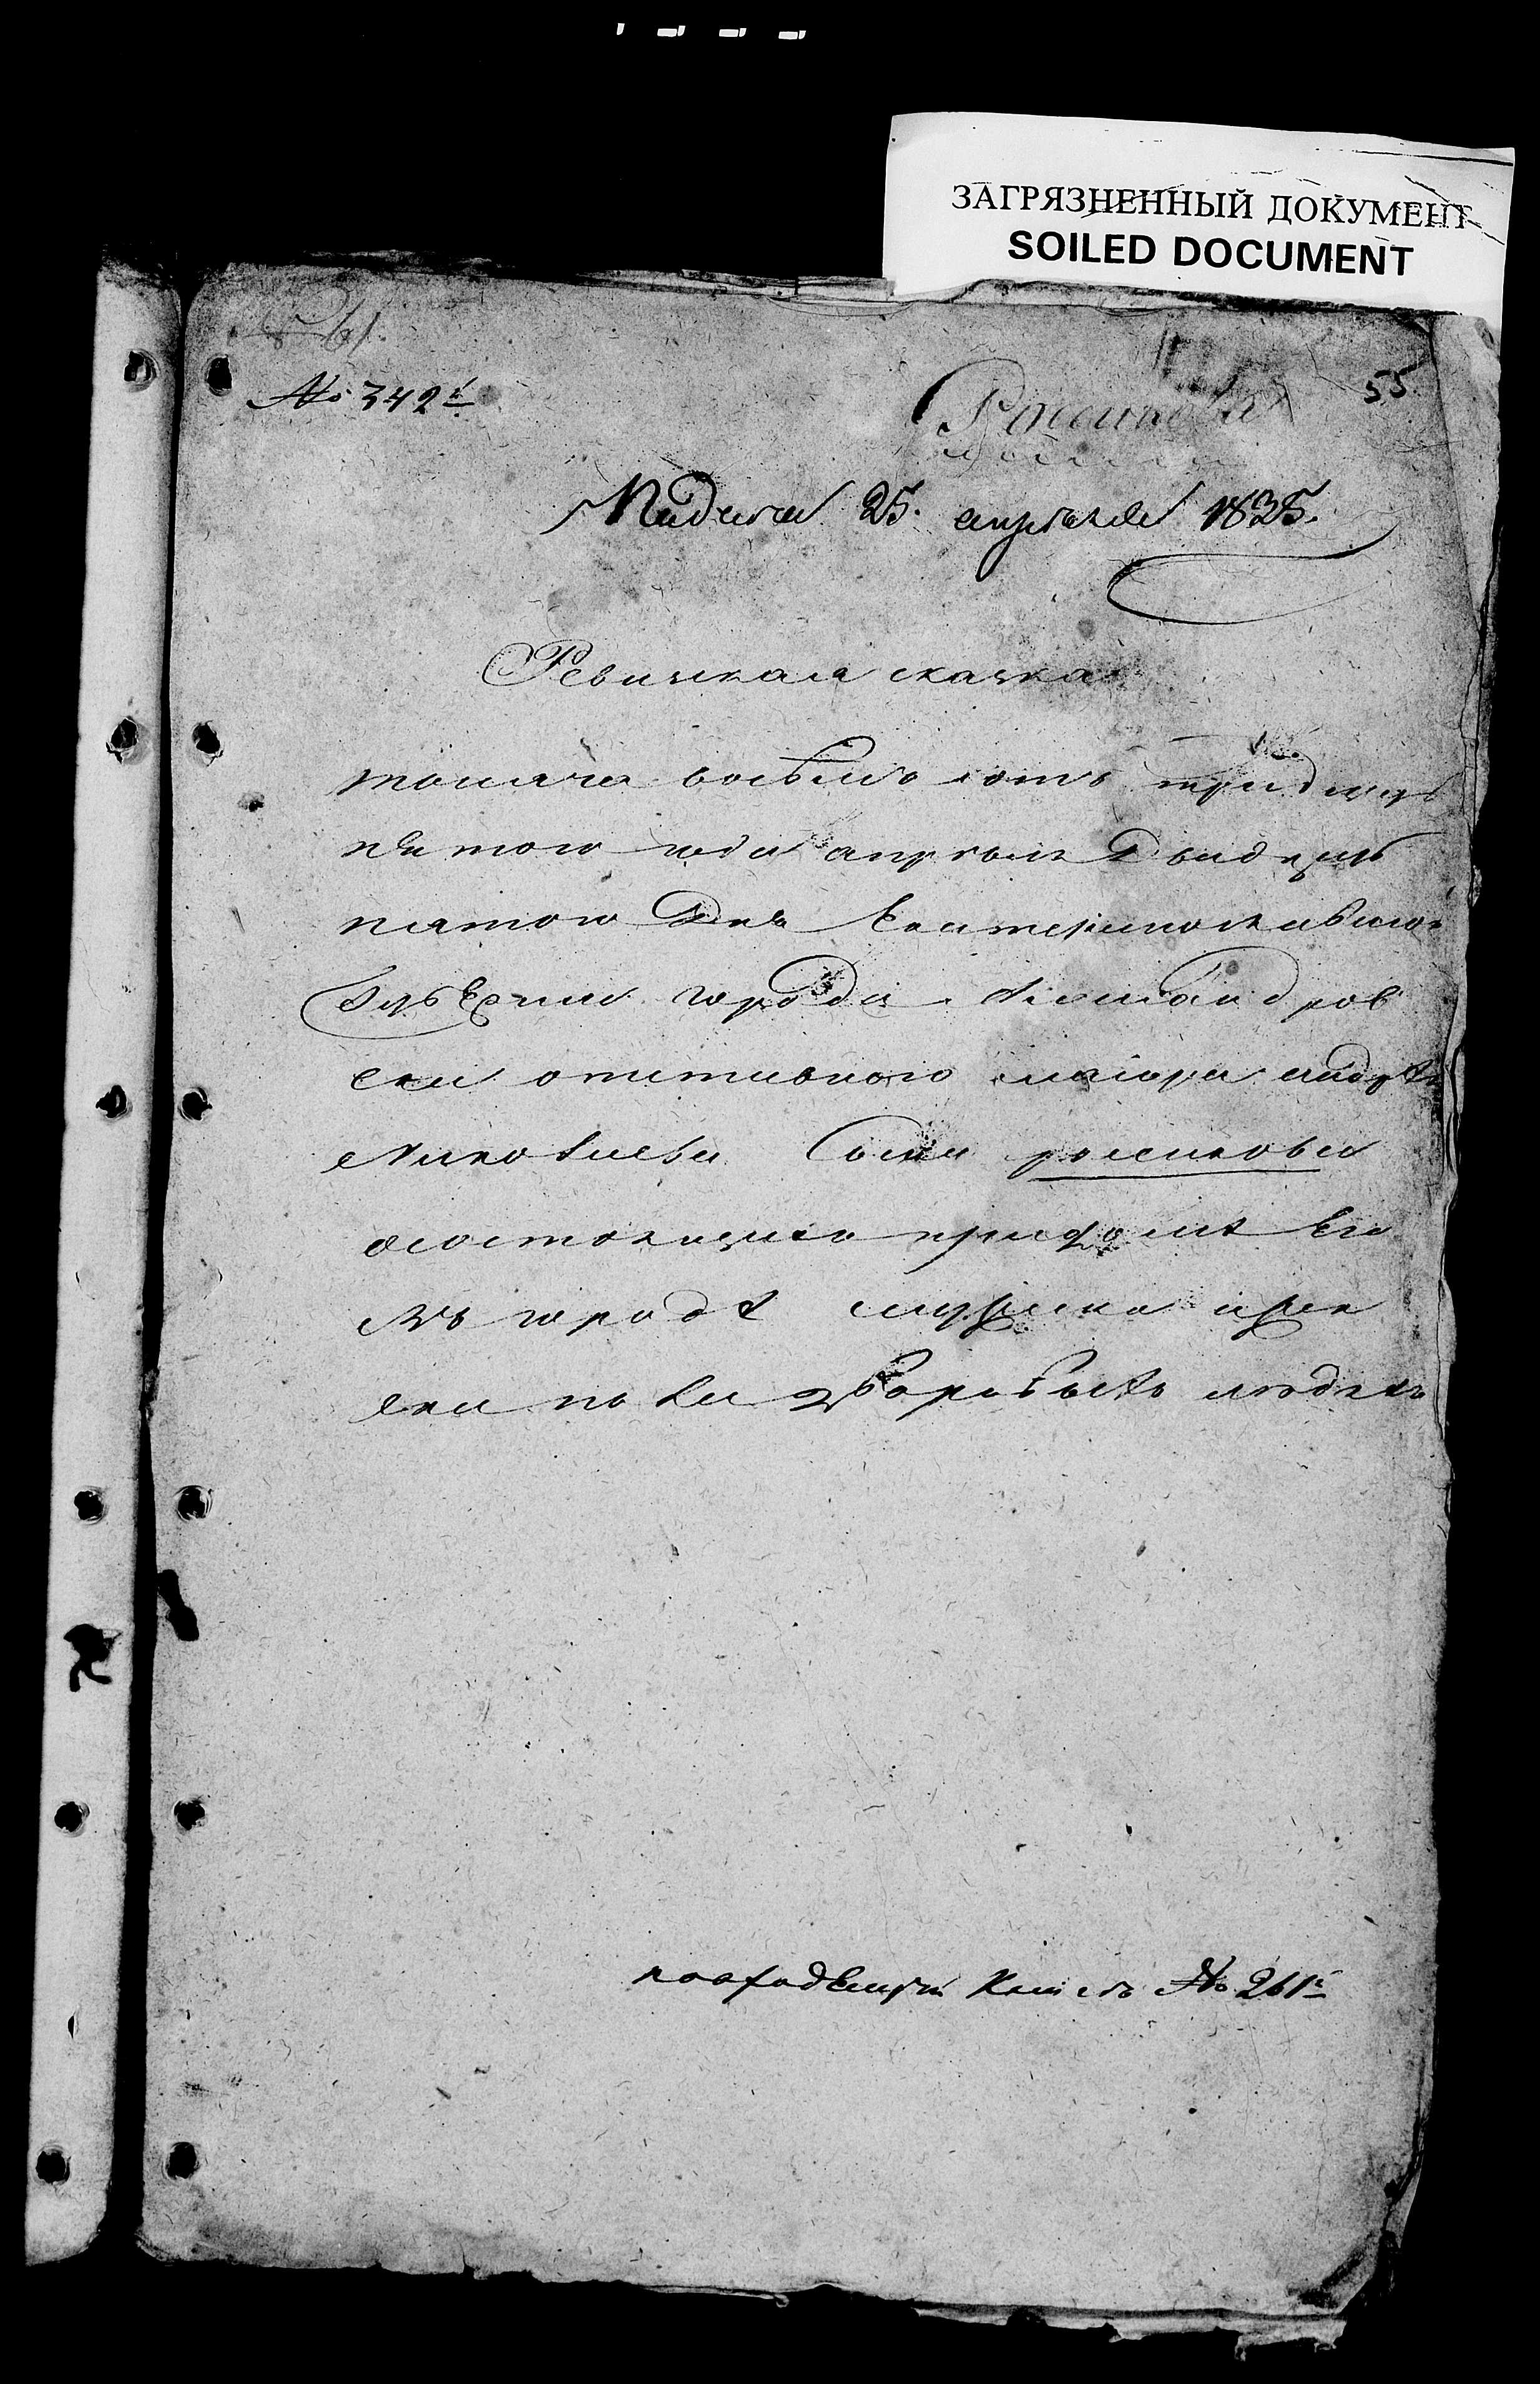 ЗАГРЯЗНЕННЫЙ ДОКУМЕНТ
SOILED DOCUMENT
№ 342й
55.
Росликова
Подана 25. апреля 1835.
Ревизская сказка
тысяча восемь сотъ тридцать
пятого года апреля двадцать
пятого дня Екатеринославской
губернии города Александров
ска отставного маіора андрея
Николаева сына росликова
о состоящихъ при доме Его
въ городе мужеска и жен
ска пола дворовыхъ людяхъ
по входящей книге № 261й